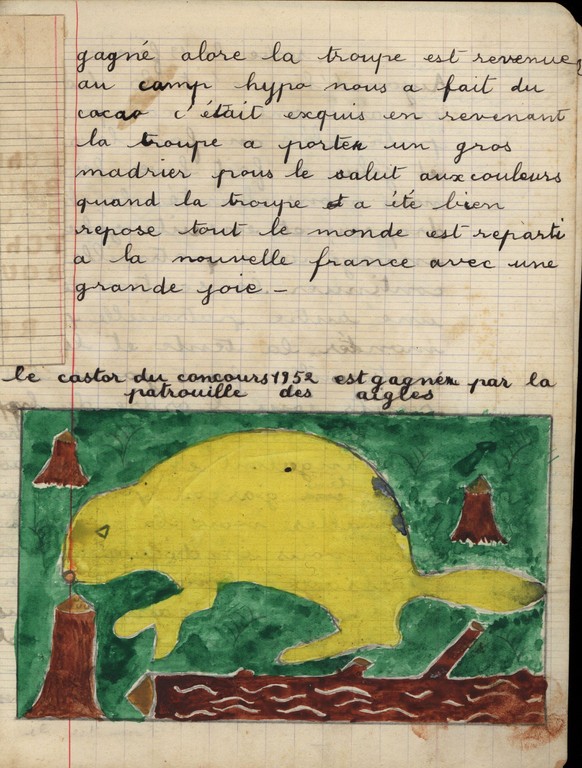 gagné alors la troupe est revenue
au camp hypo nous a fait du
cacao c'était exquis en revenant
la troupe a porter un gros
madrier pous le salut aux couleurs
quand la troupe a été bien
repose tout le monde est reparti
a la nouvelle france avec une
grande joie —
le castor du concours 1952 est gagner par la
patrouille des aigles